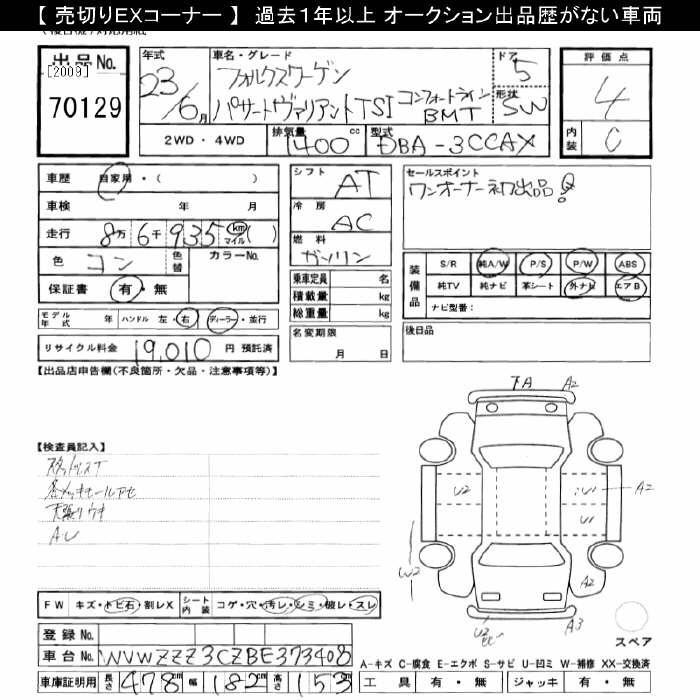 【 売切りEXコーナー 】 過去１年以上 オークション出品歴がない車両
出品No.
[2009]
70129
年式
23/6月
車名・グレード
フォルクスワーゲン
パサートヴァリアントTSI コンフォートライン
BMT
ドア
5
形状
SW
評価点
4
内装
C
2WD ・ 4WD
排気量
1400cc
型式
DBA-3CCAX
車歴 自家用・( )
車検 年 月
走行 8万6千935 km マイル ( )
色 コン 色替 カラーNo.
保証書 有・無
モデル年式 年 ハンドル 左・右 ディーラー・並行
リサイクル料金 19,010 円 預託済
シフト
AT
冷房
AC
燃料
ガソリン
乗車定員 名
積載量 kg
総重量 kg
名変期限
月 日
セールスポイント
ワンオーナー初出品!
装備品
S/R 純A/W P/S P/W ABS
純TV 純ナビ 革シート 外ナビ エアB
ナビ型番：
後日品
【出品店申告欄(不良箇所・欠品・注意事項等)】
【検査員記入】
天張りウキ
AU
FA
A2
U2
U1
A2
W2
A2
U2
A3
スペア
FW キズ・トビ石・割レX シート内装 コゲ・穴・汚レ・シミ・破レ・スレ
登録No.
車台No. WVWZZZ3CZBE373408
車庫証明用 長さ 478cm 幅 182cm 高さ 153
A-キズ C-腐食 E-エクボ S-サビ U-凹ミ W-補修 XX-交換済
工具 有・無 ジャッキ 有・無